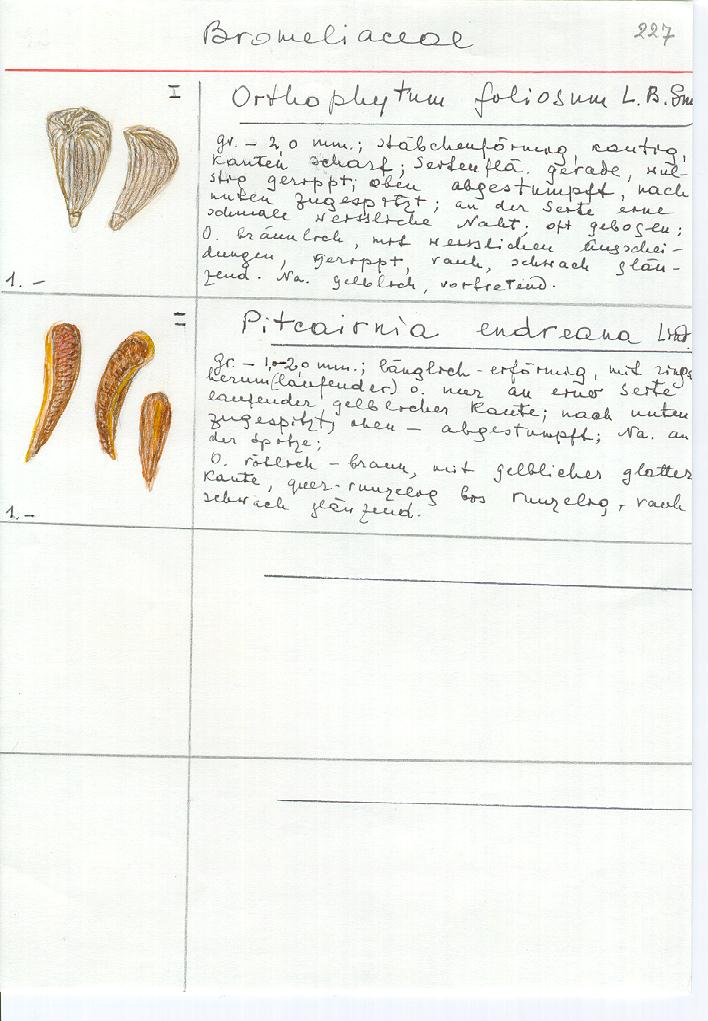 Bromeliaceae
227
I
Orthophytum foliosum L. B. Sm
gr. – 2,0 mm.; stäbchenförmig, kantig,
Kanten scharf; Seitenflä. gerade, wul-
stig gerippt; oben abgestumpft, nach
unten zugespitzt; an der Seite eine
schmale weissliche Naht; oft gebogen;
O. bräunlich, mit weisslichen Ausschei-
dungen, gerippt, rauh, schwach glän-
zend. Na. gelblich, vortretend.
1. –
II
Pitcairnia endreana Lind.
gr. – 1,0–2,0 mm.; länglich-eiförmig, mit rings
herum (laufender) o. nur an einer Seite
laufender gelblicher Kante; nach unten
zugespitzt, oben – abgestumpft; Na. an
der Spitze;
O. rötlich-braun, mit gelblicher glatter
Kante, quer-runzelig bis runzelig, rauh
schwach glänzend.
1. –